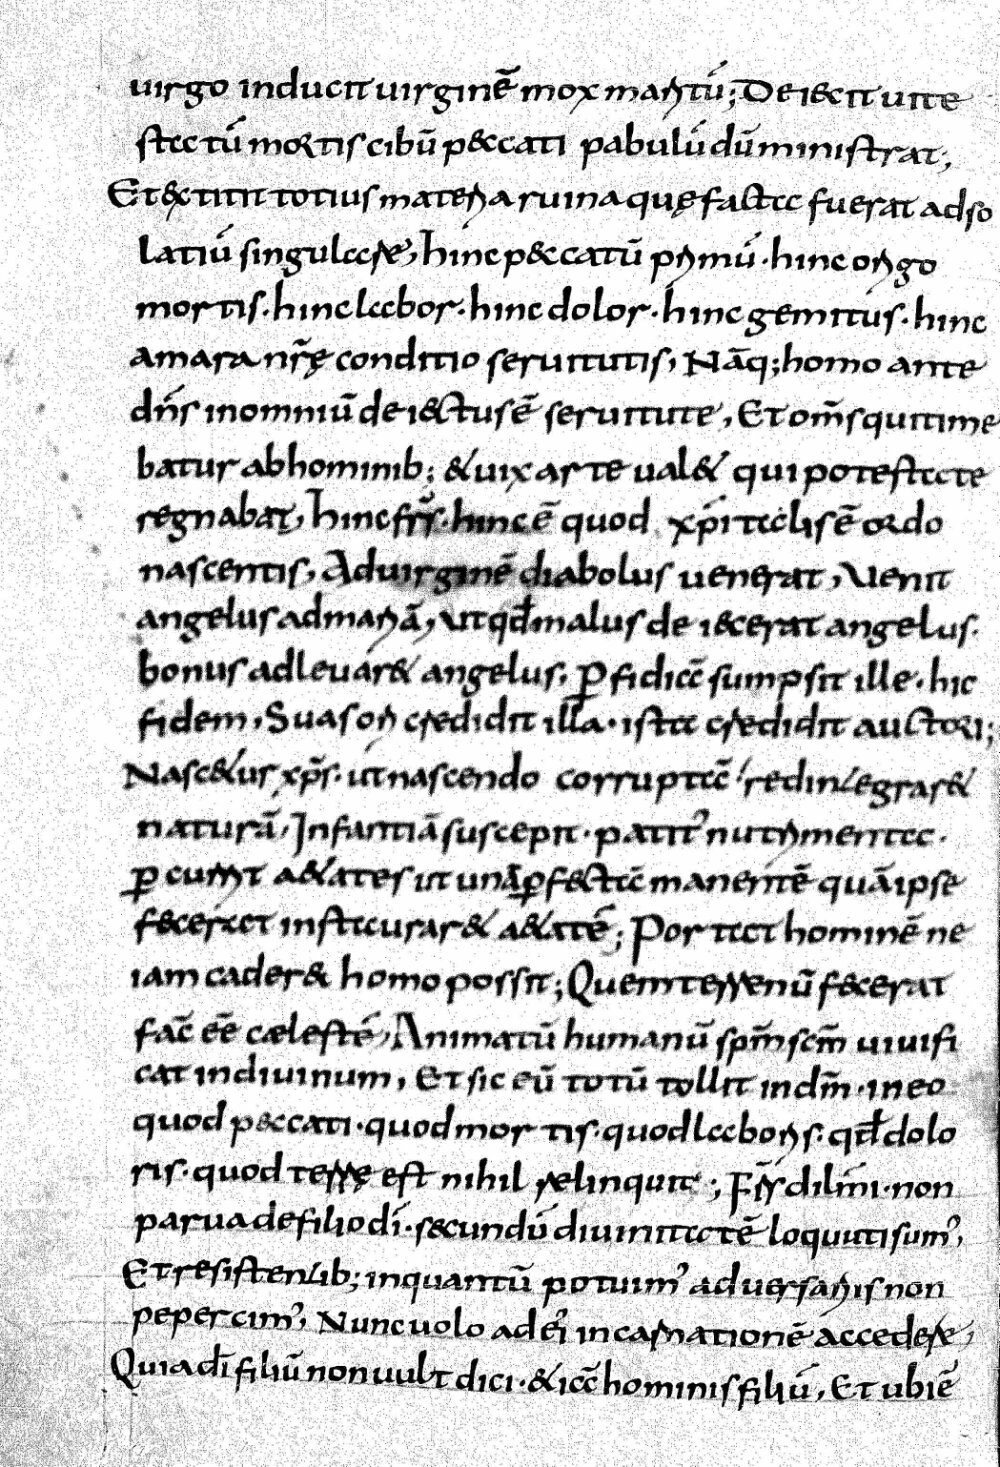 uirgo inducit uirginē mox maritū; Deiecit uite
statū mortis cibū peccati pabulū dū ministrat;
Et extitit totius materia ruina quę facta fuerat ad so
latiū singulare, hinc peccatū primū · hinc origo
mortis · hinc labor · hinc dolor · hinc gemitus · hinc
amara nr̄ę conditio seruitutis, Nāq; homo ante
dn̄s in omniū deiectus ē seruitute, Et om̄s qui time
batur ab hominib; & uix arte ual& qui potestate
regnabat, hinc fr̄s · hinc ē quod xp̄i talis ē ordo
nascentis, Ad uirginē diabolus uenerat, Uenit
angelus ad mariā, Ut qđ malus deiecerat angelus ·
bonus adleuar& angelus, ꝑfidiā sumpsit ille · hic
fidem, Suasori credidit illa · ista credidit auctori;
Nascetur xp̄s · ut nascendo corruptā redintegrar&
naturā, Infantiā suscepit · patitᵘr nutrimenta ·
ꝑcurrit aetates ut unā ꝑfectā manentē quā ipse
fecerat instaurar& aetatē; Portat hominē ne
iam cader& homo possit; Quem terrenū fecerat
fac̄ eē cælestē, Animatū humanū sp̄m sc̄m uiuifi
cat in diuinum, Et sic eū totū tollit in dm̄ · in eo
quod peccati · quod mortis · quod laboris · qđ dolo
ris · quod terrę est nihil relinquit; Fr̄s dilm̄i · non
parua de filio dī · secundū diuinitatē loquuti sum᾽,
Et resistentib; inquantū potuim᾽ aduersariis non
pepercim᾽, Nunc uolo ad ei᾽ incarnationē accedere,
Quia dī filiū non uult dici · & iā hominis filiū, Et ubi ē